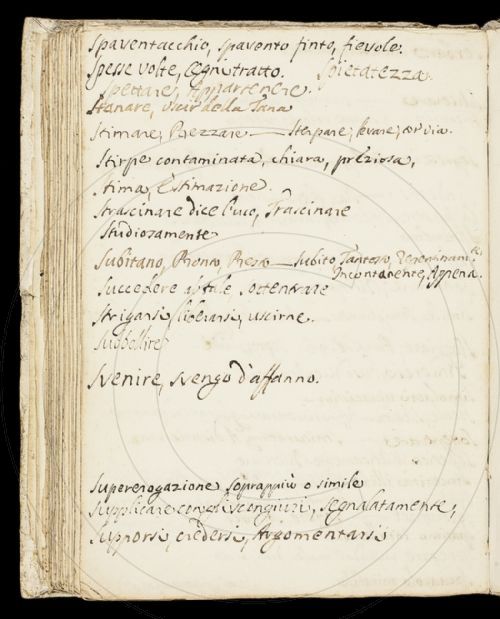 Spaventacchio, spavento finto, fievole.
Spesse volte, ogni tratto. Spietatezza.
Spettare, Appartenere.
Stanare, uscir della Tana
Stimare, Prezzare — Sterpare, levare, via.
Stirpe contaminata, chiara, preziosa,
Stima, Estimazione.
Strascinare dice l'uso, Trascinare
Studiosamente
Subitano, Pronto, Presto — Subito
Incontanente, Appena.
Succedere, sottentrare
Strigarsi, liberarsi, uscirne.
Subbollire
Svenire, svengo d'affanno.
Supererogazione soprappiù o simile
Supplicare con gli scongiuri, segnalatamente,
Supporsi, credersi, Argomentarsi